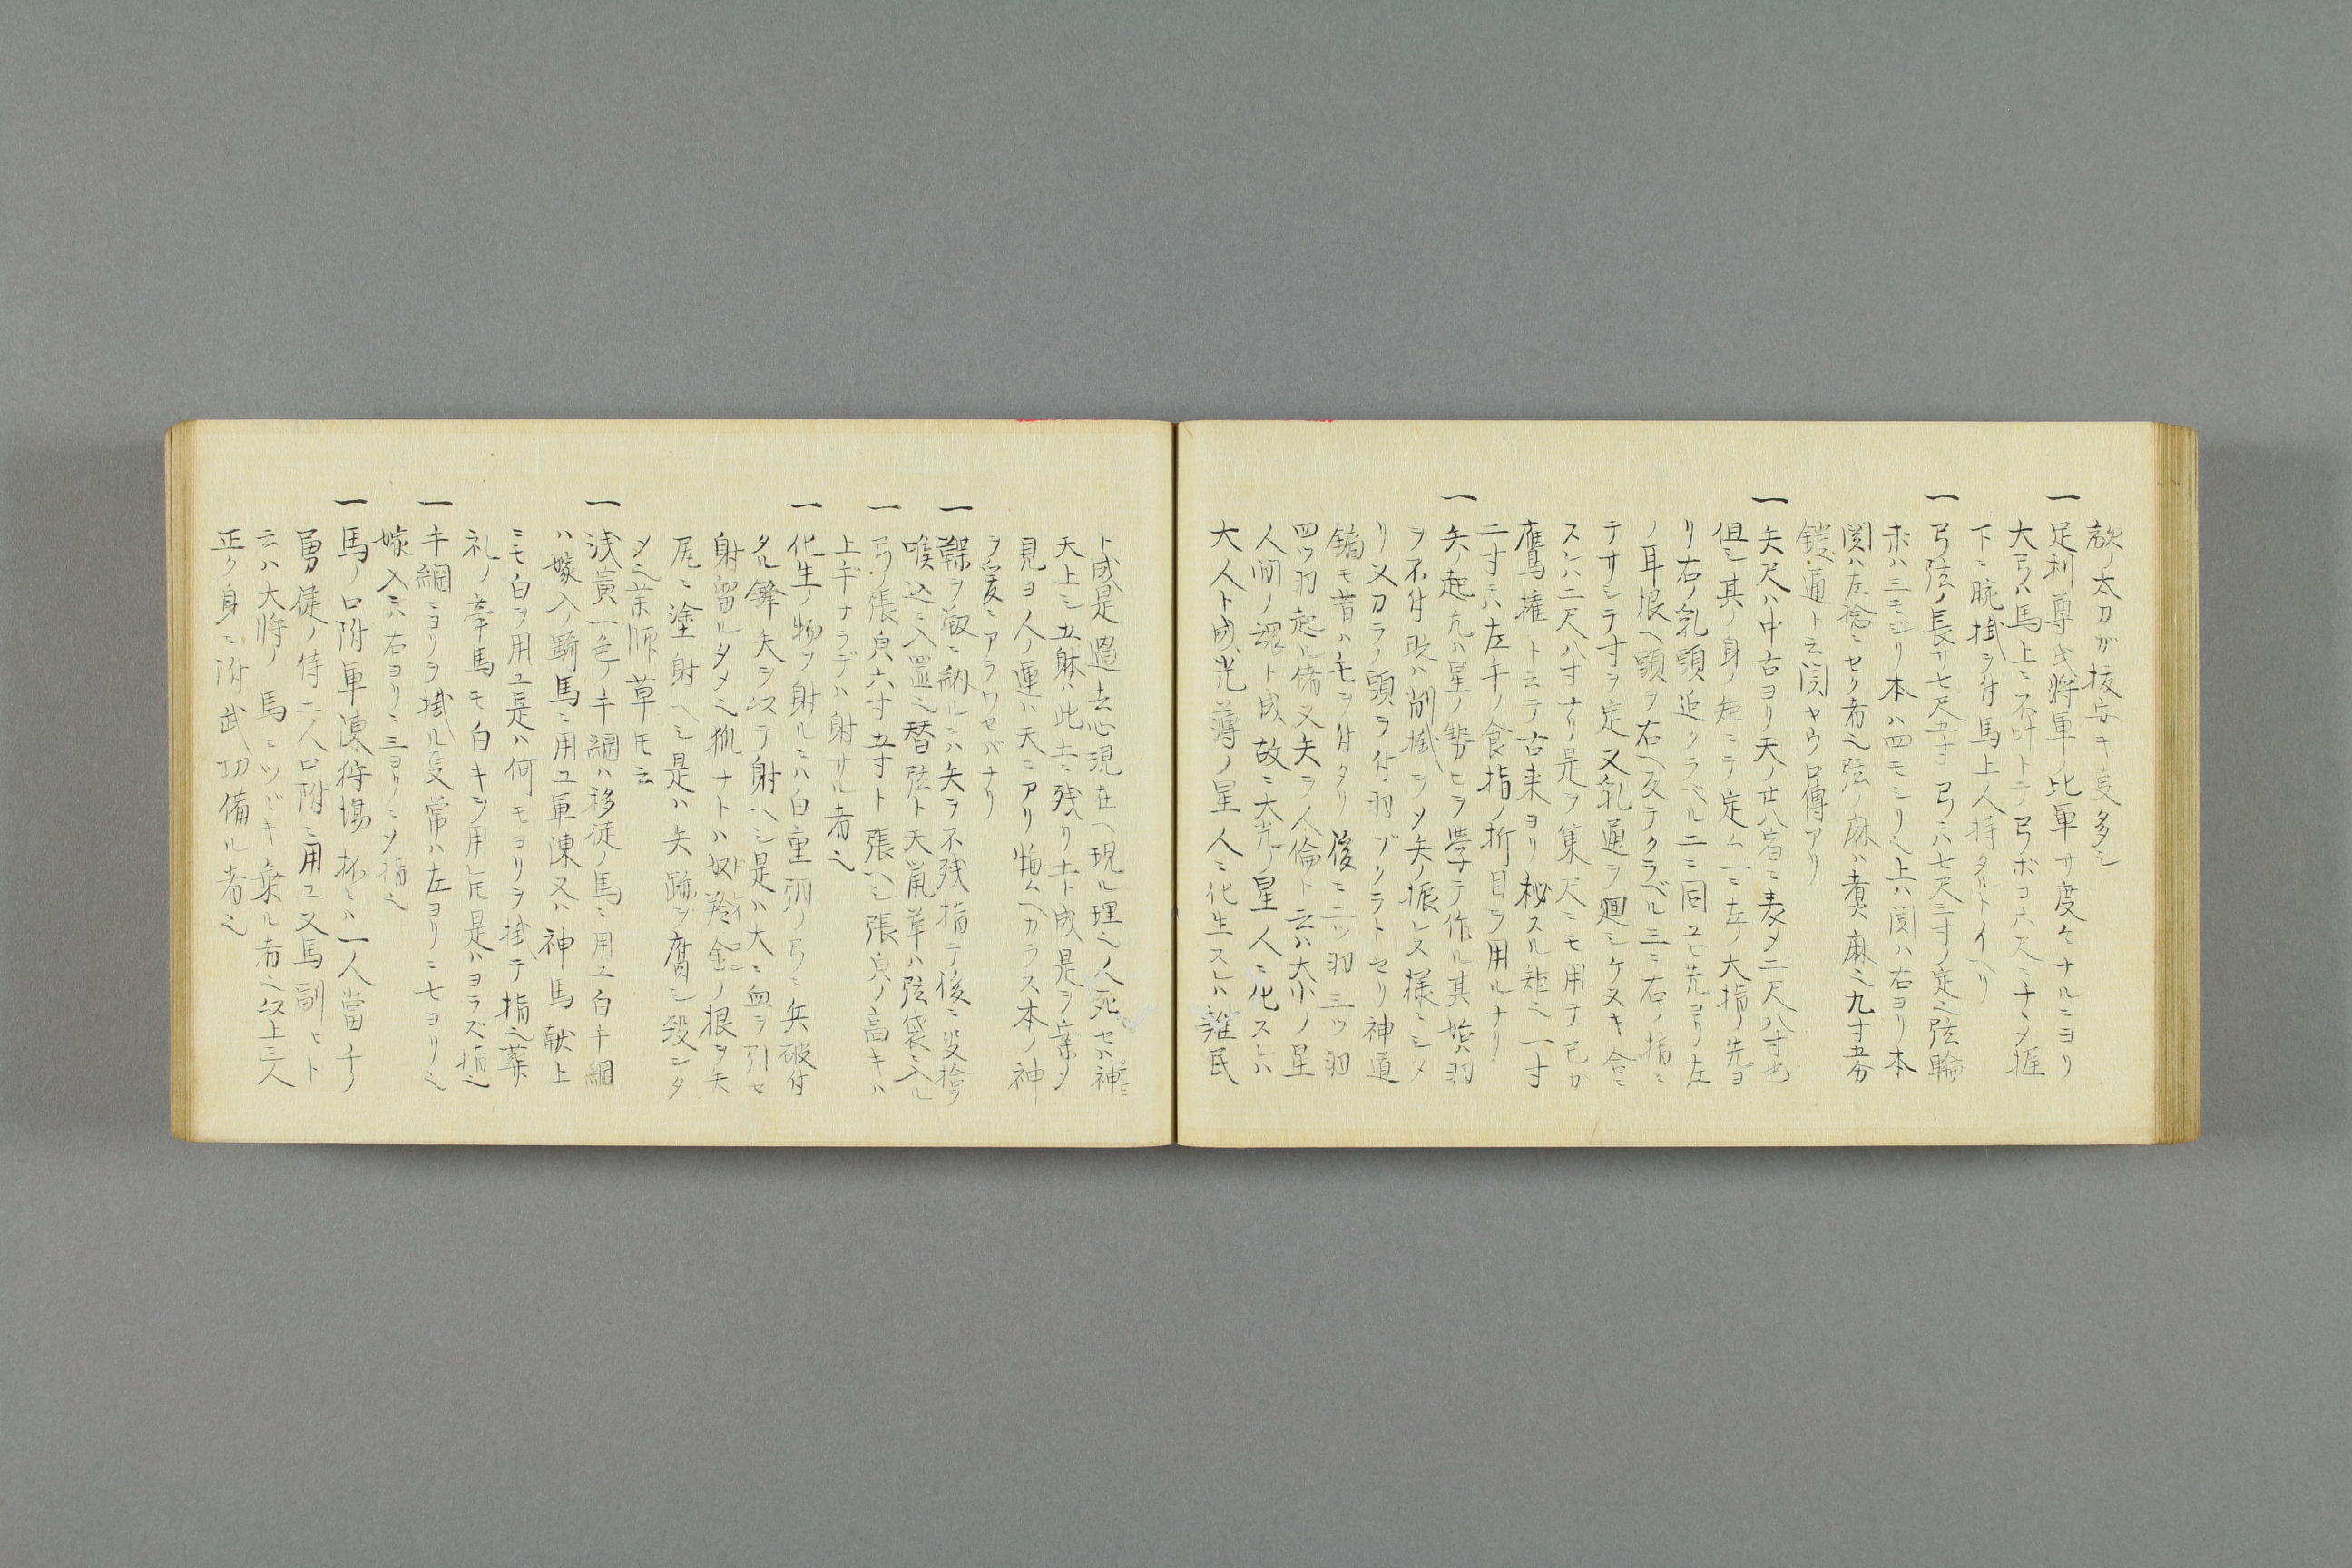 敵ノ太刀ガ抜安キ叓多シ
一 足利尊氏将軍ノ比軍サ度々ナルニヨリ
大弓ハ馬上ニ不叶トテ弓ボコ六尺ニチヾメ握
下ニ腕掛ヲ付馬上人持タルトイヘリ
一 弓弦ノ長サ七尺五寸 弓ハ七尺三寸ノ定也弦輪
末ハ三モジリ本ハ四モジリ也上ハ関ハ右ヨリ本
関ハ左捻ニセク者也弦ノ麻ハ煮麻也九寸五分
鎧通ト云関ヤウ口傳アリ
一 矢尺ハ中古ヨリ天ノ廿八宿ニ表メ二尺八寸也
但シ其ノ身ノ矩ニテ定ム一ニ左ノ大指ノ先ヨ
リ右ノ乳頭迄クラベル二ニ同ユビ先ヨリ左
ノ耳根ヘ頭ヲ右ヘ反テクラベル三ニ右ノ指ニ
テサシテ寸ヲ定又乳通ヲ廻シケヌキ合ニ
スレハ二尺八寸ナリ是ヲ集尺ニモ用テ己ガ
鷹権トニテ古来ヨリ秘スル矩也一寸
二寸ニハ左手ノ食指ノ折目ヲ用ルナリ
一 矢ノ起元ハ星ノ勢ヒヲ學テ作ル其始ハ羽
ヲ不付故ハ削掛ヲメ矢ノ振レヌ様ニシタ
リ又カラノ頭ヲ付羽ブクラトセリ神道
鏑モ昔ハ毛ヲ付タリ後ニ二ツ羽三ツ羽
四ツ羽起ル偖又矢ヲ人倫ト云ハ大小ノ星
人間ノ謂ト成故ニ大光ノ星人ニ化スレハ
大人ト成光薄ノ星人ニ化生スレハ雑民
ト成是過去心現在ヘ現ル理也人死セハ神
天上シ五躰ハ此土ニ残リ土ト成是ヲ棄メ
見ヨ人ノ運ハ天ニアリ悔ムヘカラス本ノ神
ヲ爰ニアラワセバナリ
一 靱ヲ敵ニ納ルニハ矢ヲ不残指テ後ニ
喉込ニ入置也替弦ト天鼠草ハ弦袋ニ入ル
一 弓ノ張皃六寸五寸ト張ヘシ張皃ノ高キハ
上手ナラデハ射サル者也
一 化生ノ物ヲ射ルニハ白重弣ノ弓ニ兵破付
タル鋒矢ヲ以テ射ヘシ是ハ大ニ血ヲ引セ
射留ルタメ也狐ナトハ奴羚金ノ根ヲ矢
尻ニ塗射ヘシ是ハ矢跡ヲ腐シ殺シタ
メ也茉師草モ云
一 浅黄一色ノ手綱ハ移徒ノ馬ニ用ユ白手綱
ハ嫁入ノ騎馬ニ用ユ軍陳又ハ神馬献上
ニモ白ヲ用ユ是ハ何モヨリヲ掛テ指也葬
礼ノ牽馬モ白キヲ用レ𪜈是ハヨラズ指也
一 手綱ニヨリヲ掛ル叓常ハ左ヨリニ七ヨリ也
嫁入ニハ右ヨリニ三ヨリニメ指也
一 馬ノ口附軍陳狩場抔ニハ一人當千ノ
勇健ノ侍二人口附ニ用ユ又馬副ヒト
云ハ大将ノ馬ニツヾキ乗ル者也以上三人
正ク身ニ附武功備ル者也